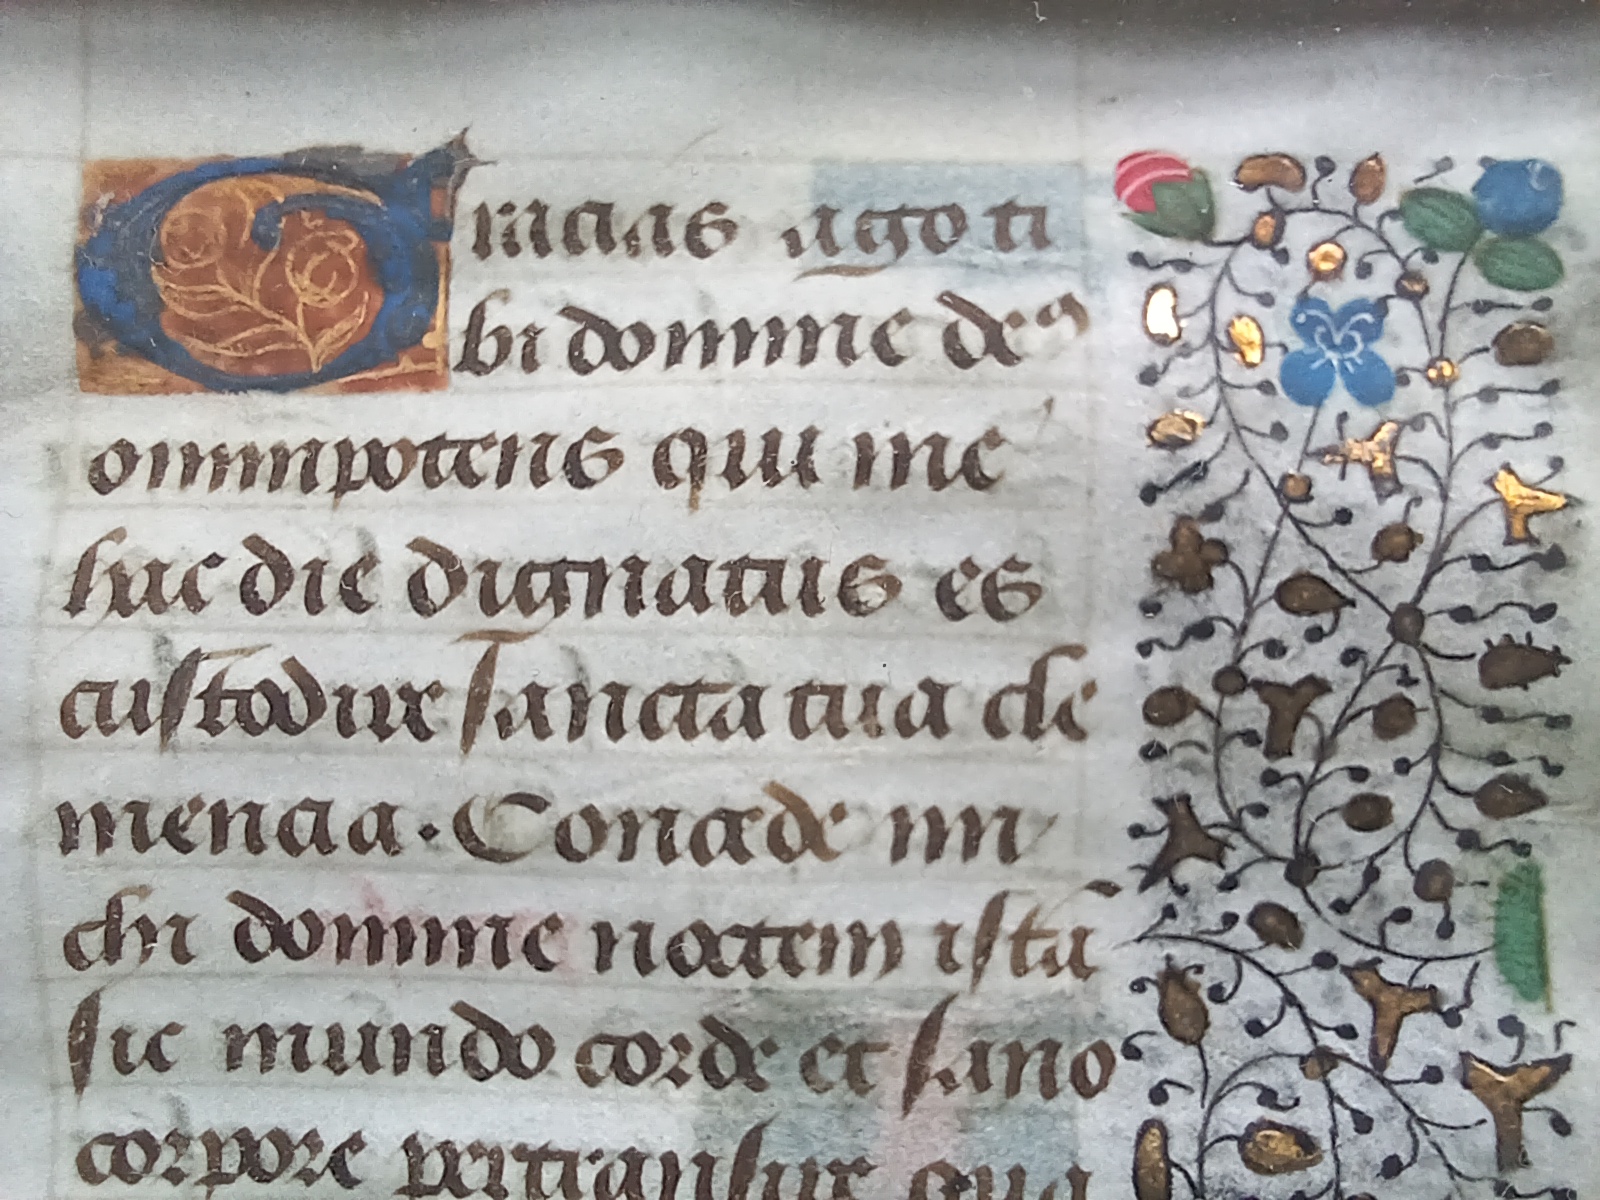 Gracias ago ti
bi domine deꝰ
omnipotens qui me
hac die dignatus es
custodire sancta tua cle
mencia · Concede mi
chi domine noctem istā
sic mundo corde et sano
corpore pertransire qua